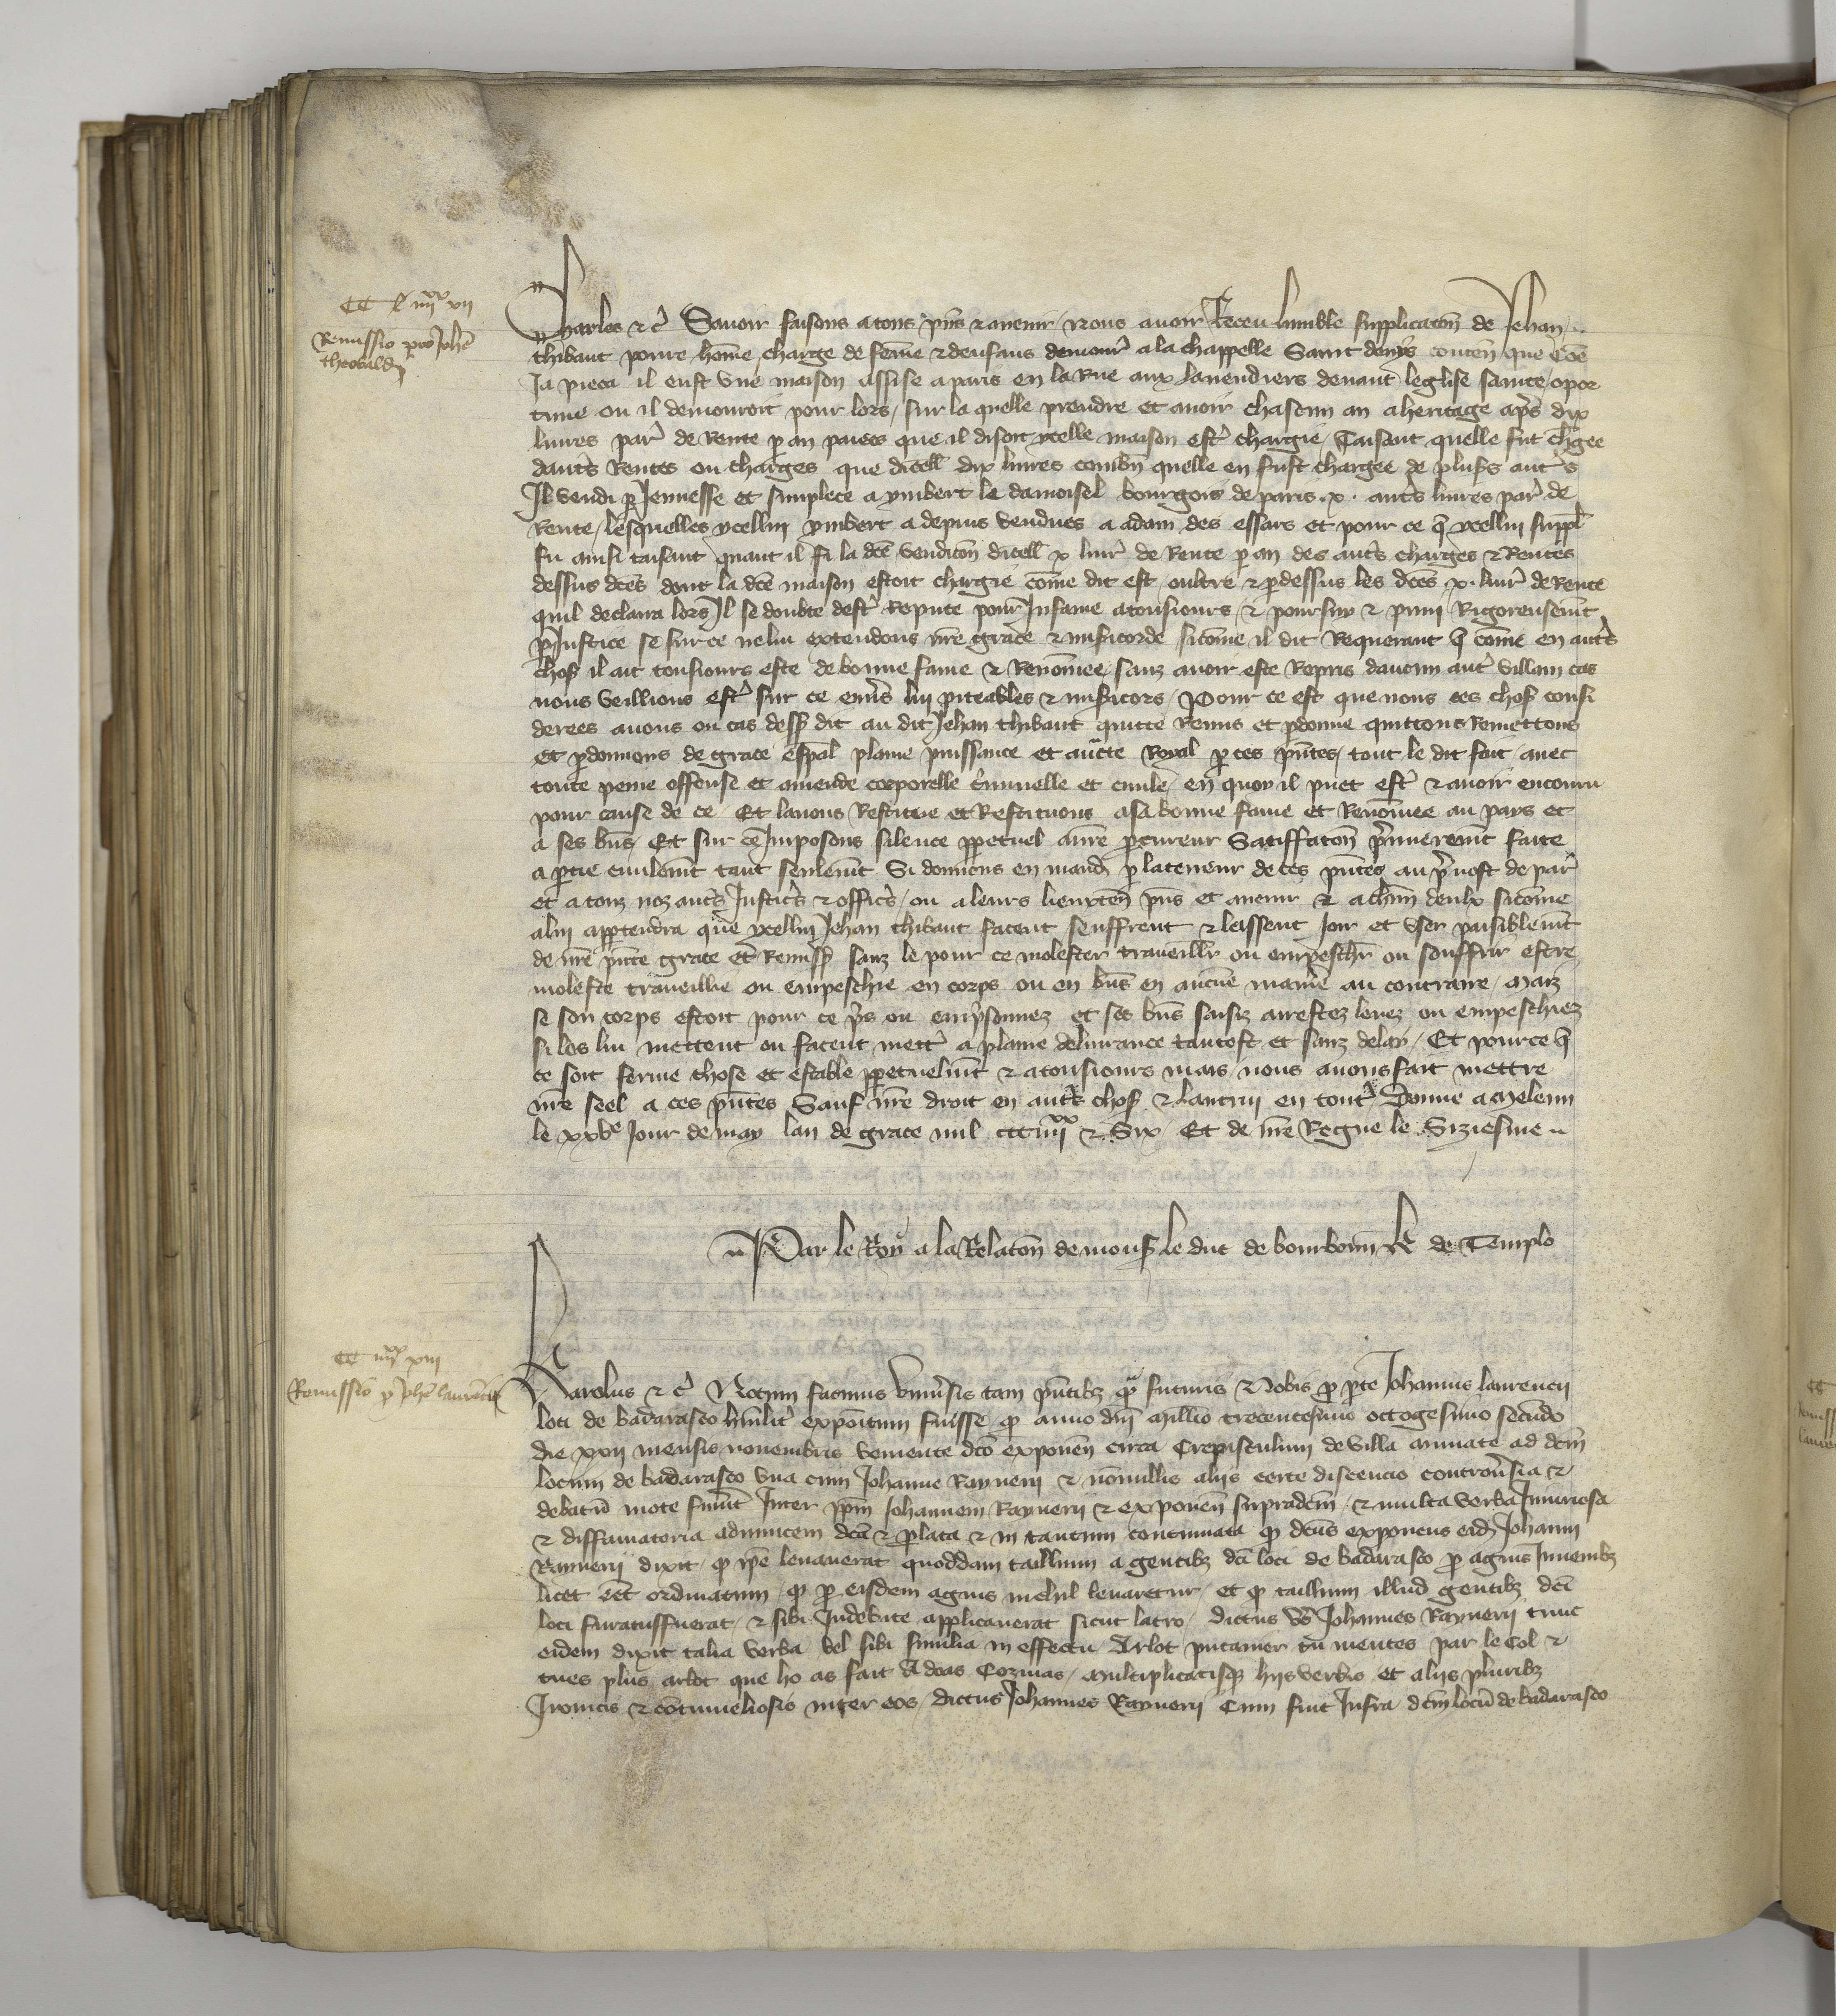 CC iiiixx xii
Remissio pro Johe
theobaldi
Charles &c Savoir faisons a tous pns & avenir Nous avoir Receu lumble supplicacon de Jehan
thibaut povre home charge de feme & denfans demour a la chappelle Saint denys conten que Coe
Ja pieca il eust une maison assise a paris en la Rue aux lavendiers devant leglise sainte opor
tune ou il demouroit pour lors / sur la quelle prendre et avoir chascun an a heritage apres dix
livres par de Rente p an paiees que il disoit ycelle maison estr chargie / Taisant quelle fut chgee
dautres Rentes ou charges que dicell dix livres combn quelle en fust chargee de plus autrs
Il vendi p Jeunesse et simplece a ymbert le damoisel bourgois de paris .x. autrs livres par de
Rente / lesquelles ycellui ymbert a depuis vendues a adam des essars et pour ce q ycellui suppl
fu ainsi taisant quant il fi la dce vendicon dicell x livr de Rente p an des autrs charges & Rentes
dessus dces dont la dce maison estoit chargie come dit est oultre & p dessus les dces x. livr de Rente
quil declaira lors Il se doubte destr Repute pour Infame a tousiours & poursuy & puni Rigoreusemt
p Justice se sur ce ne lui extendons nre grace & misicorde sicome il dit Requerant q come en autrs
chos il ait tousiours este de bonne fame & Renomee sanz avoir este Repris daucun autr villain cas
nous veillions estr sur ce envs lui piteables & misicors / Pour ce est que nous ces chos consi
derees avons ou cas dess dit au dit Jehan thibaut quitte Remis et pdonne quittons Remettons
et pdonnons de grace espal plaine puissance et aucte Royal p ces pntes / tout le dit fait / avec
toute peine offense et amende corporelle criminelle et civile en quoy il puet estr & avoir encouru
pour cause de ce / Et lavons Restitue et Restituons a sa bonne fame et Renommee au pays et
a ses bns / Et sur ce Imposons silence ppetuel a nre pcureur Satiffacon prmierement faite
a ptie civilemt tant seulemt Si donnons en mand p la teneur de ces pntes au pvost de par
et a touz noz autrs Justicrs & officrs / ou a leurs lieuxten pns et avenir & a chun deulx sicome
a lui apptendra que ycellui Jehan thibaut facent seuffrent & leissent Joir et User paisiblemt
de nre pnte grace et Remiss sanz le pour ce molester traveillr ou empeschr ou souffrir estre
moleste traveillie ou empeschie en corps ou en bns en aucune manie au contraire / Maiz
se son corps estoit pour ce pris ou emprisonnez et ses bns saisiz arrestez levez ou empeschiez
si les lui mettent ou facent mettr a plaine delivrance tantost et sanz delay / Et pource q
ce soit ferme chose et estable ppetuelmt & a tousiours mais nous avons fait mettre
nre seel a ces pntes Sauf nre droit en autrs chos & lautrui en toutr Donne a Meleun
le xxve Jour de may lan de grace mil ccciiiixx & Six / Et de nre Regne le Siziesme
Par le Roy a la Relacon de mons le duc de bourbonn H de Templo
CC iiiixx xiii
Remissio p Johe laurencii
Karolus &c Notum facimus Univsis tam pntibz q futuris Nobis p pte Johannis laurencii
loci de badarasco humilitr expoitum fuisse / q anno dni Millio trecentesimo octogesimo secundo
die xxii mensis novembris veniente dco exponen circa Crepusculum de villa amnate ad dcm
locum de badarasco una cum Johanne Raynerii & nonnullis aliis certe discencio controvsia &
debatu mote fuerut Inter ipm Johannem Raynerii & exponen supradcm / & multa verba Iniuriosa
& diffamatoria adinvicem dca & plata & in tantum continuata q dcus exponens eidem Johanni
Raynerii dixit / q ipe levaverat quoddam tallium a gentibz dci loci de badarasco p agnis Juvenibz
licet eet ordinatum q p eisdem agnis nichil levaretur / et q taillium illud gentibz dci
loci furatus fuerat / & sibi Indebite applicaverat sicut latro / dictus vo Johannes Raynerii tunc
eidem dixit talia verba vel sibi similia in effectu / Arlot putanier tu mentes par le Col &
tues plus arlot que ho as fait A doas Cozinas / Multiplicatisq hiis verbis et aliis pluribz
Ironicis & contumeliosis inter eos / dictus Johannes Raynerii Cum fuit Infra dcm locu de badarasco